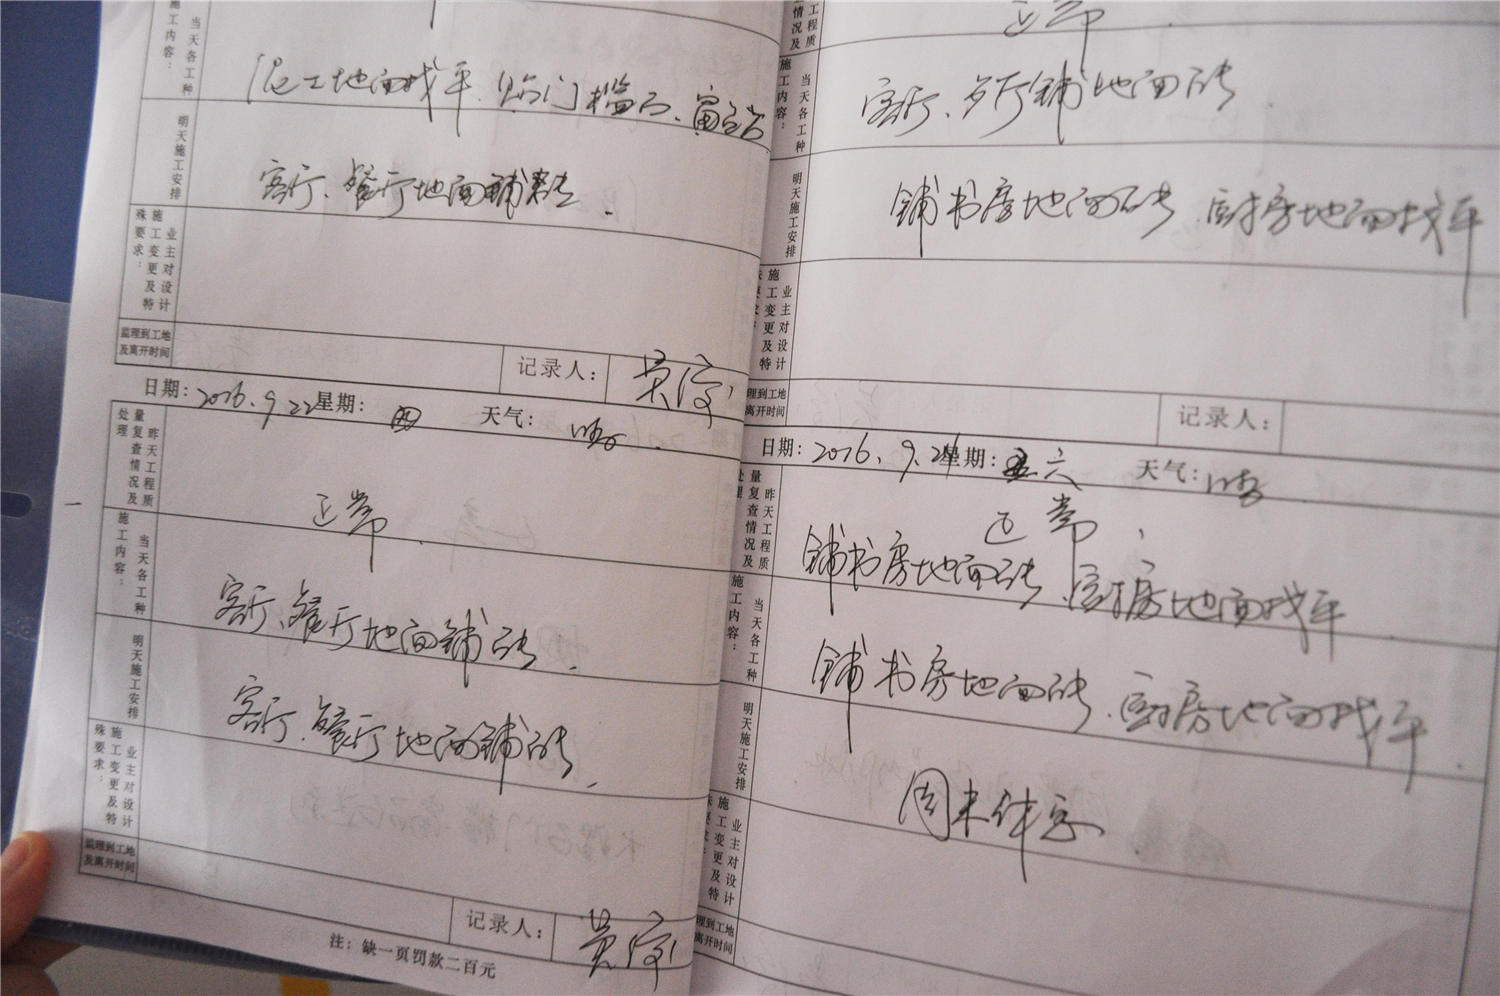 施工内容：
当天各工种
泥工地面找平、贴门槛石、窗台石
明天施工安排
客厅、餐厅地面铺砖.
殊要求：
施工变更及特
业主对设计
监理到工地
及离开时间
记录人：
日期：2016.9.22 星期：四 天气：晴.
处理
量复查情况及
昨天工程质
正常.
施工内容：
当天各工种
客厅、餐厅地面铺砖.
明天施工安排
客厅、餐厅地面铺砖.
殊要求：
施工变更及特
业主对设计
监理到工地
及离开时间
记录人：
注：缺一页罚款二百元
情况及
工程质
正常
施工内容：
当天各工种
客厅、歺厅铺地面砖.
明天施工安排
铺书房地面砖.厨房地面找平
施工变更及特
业主对设计
理到工地
离开时间
记录人：
日期：2016.9.24 星期：六 天气：晴.
量复查情况及
昨天工程质
正常.
施工内容：
当天各工种
铺书房地面砖.厨房地面找平.
铺书房地面砖.厨房地面找平.
明天施工安排
周末休息
施工变更及特
业主对设计
理到工地
离开时间